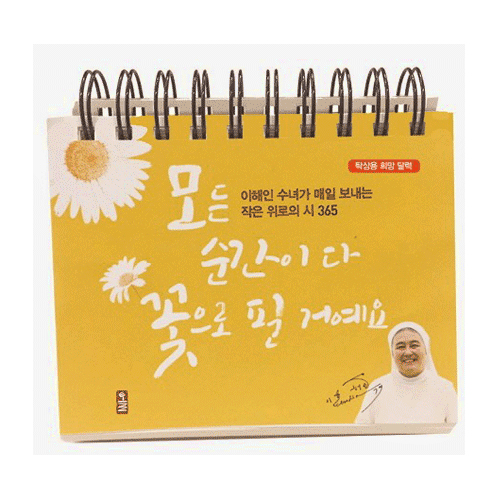 탁상용 희망 달력
이해인 수녀가 매일 보내는
작은 위로의 시 365
모든
순간이 다
꽃으로 필 거예요